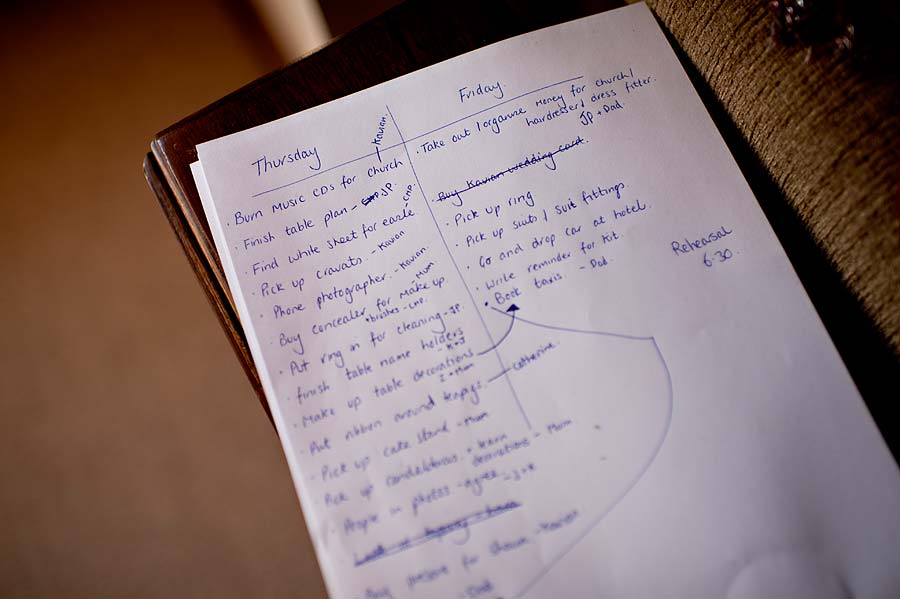 Thursday
Kavian.
· Burn Music CDs for church
· Finish table plan - JP.
· Find white sheet for easle - CMP.
· Pick up cravats. - Kavian
· Phone photographer. - Kavian.
· Buy concealer for make up - Mum
+ brushes - CMP.
· Put ring in for cleaning - JP.
· finish table name holders
- K+J
· Make up table decorations
I + Mum
· Put ribbon around teapigs. - Catherine.
· Pick up cake stand - Mum
Pick up candelabras + learn
decorations - Mum
· People in photos - agree - J+K
· Buy present for - Kavian
- Dad
Friday
· Take out / organise money for church /
hairdresser / dress fitter.
JP + Dad.
· Buy Kavian wedding card.
· Pick up ring
· Pick up suits / suit fittings
· Go and drop car at hotel.
· Write reminder for kit.
· Book taxis - Dad.
Rehearsal
6.30.